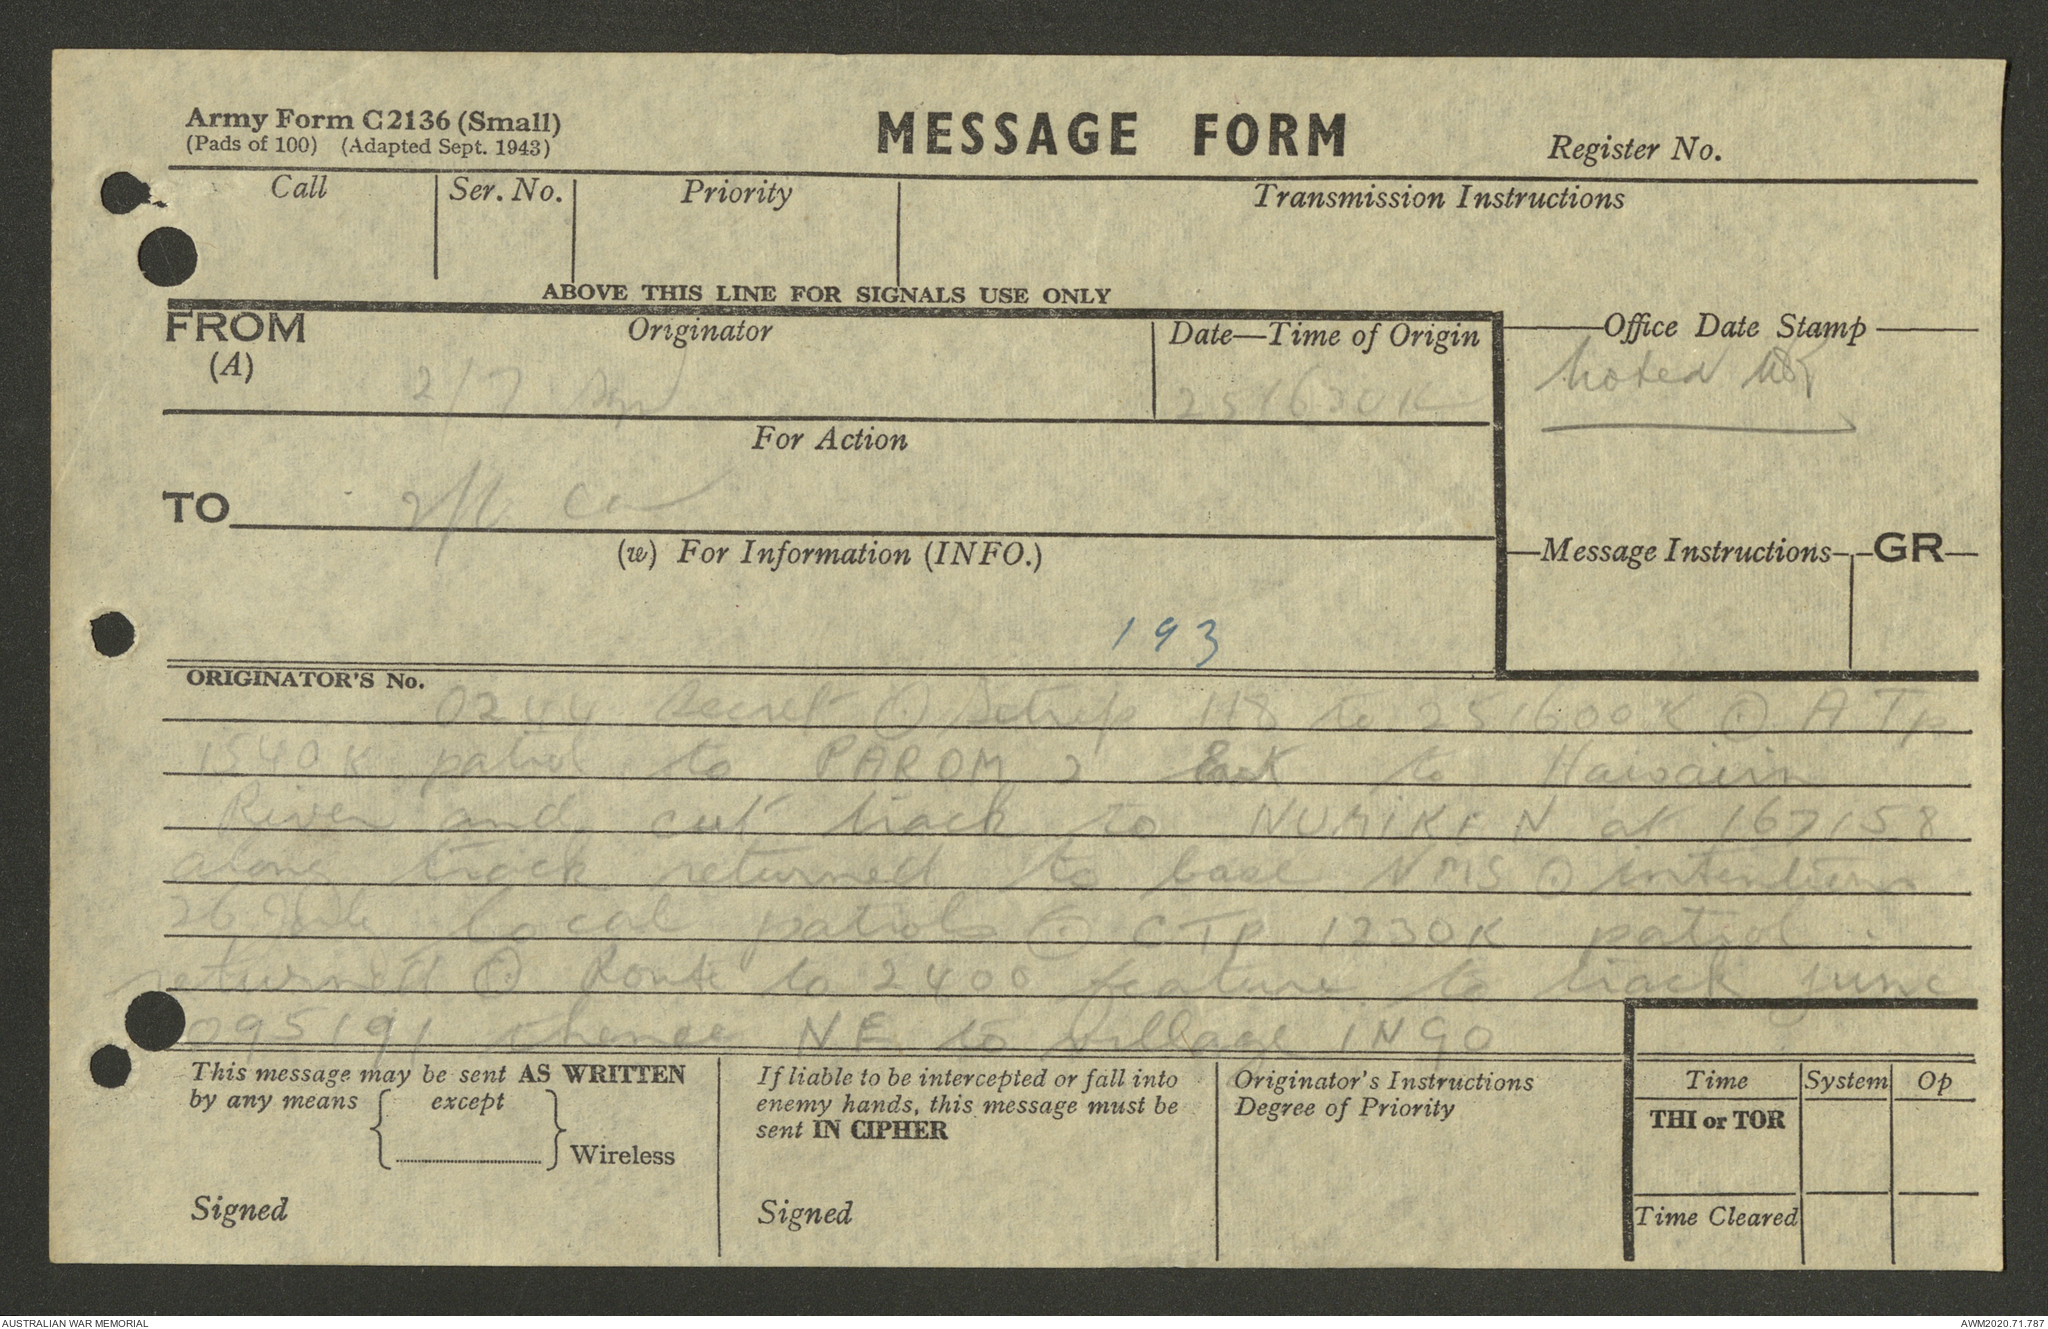 Army Form C2136 (Small)
(Pads of 100) (Adapted Sept. 1943)
MESSAGE FORM
Register No.
Call Ser. No. Priority Transmission Instructions
ABOVE THIS LINE FOR SIGNALS USE ONLY
FROM Originator Date—Time of Origin Office Date Stamp
(A)
2/7 251630K noted
For Action
TO 2/6
(w) For Information (INFO.) Message Instructions GR
193
ORIGINATOR'S No.
0244 Secret Sitrep 118 to 251600K A Tp
1540K patrol to PAROM 2 East to Hawain
River and cut track to NUMIKEN at 167158
along track returned to base NMS intention
26 local patrols C Tp 1230K patrol
returned Route to 2400 feature to track junc
095191 thence NE to village INGO
This message may be sent AS WRITTEN
by any means except
Wireless
Signed
If liable to be intercepted or fall into
enemy hands, this message must be
sent IN CIPHER
Signed
Originator's Instructions
Degree of Priority
Time System Op
THI or TOR
Time Cleared
AUSTRALIAN WAR MEMORIAL
AWM2020.71.787